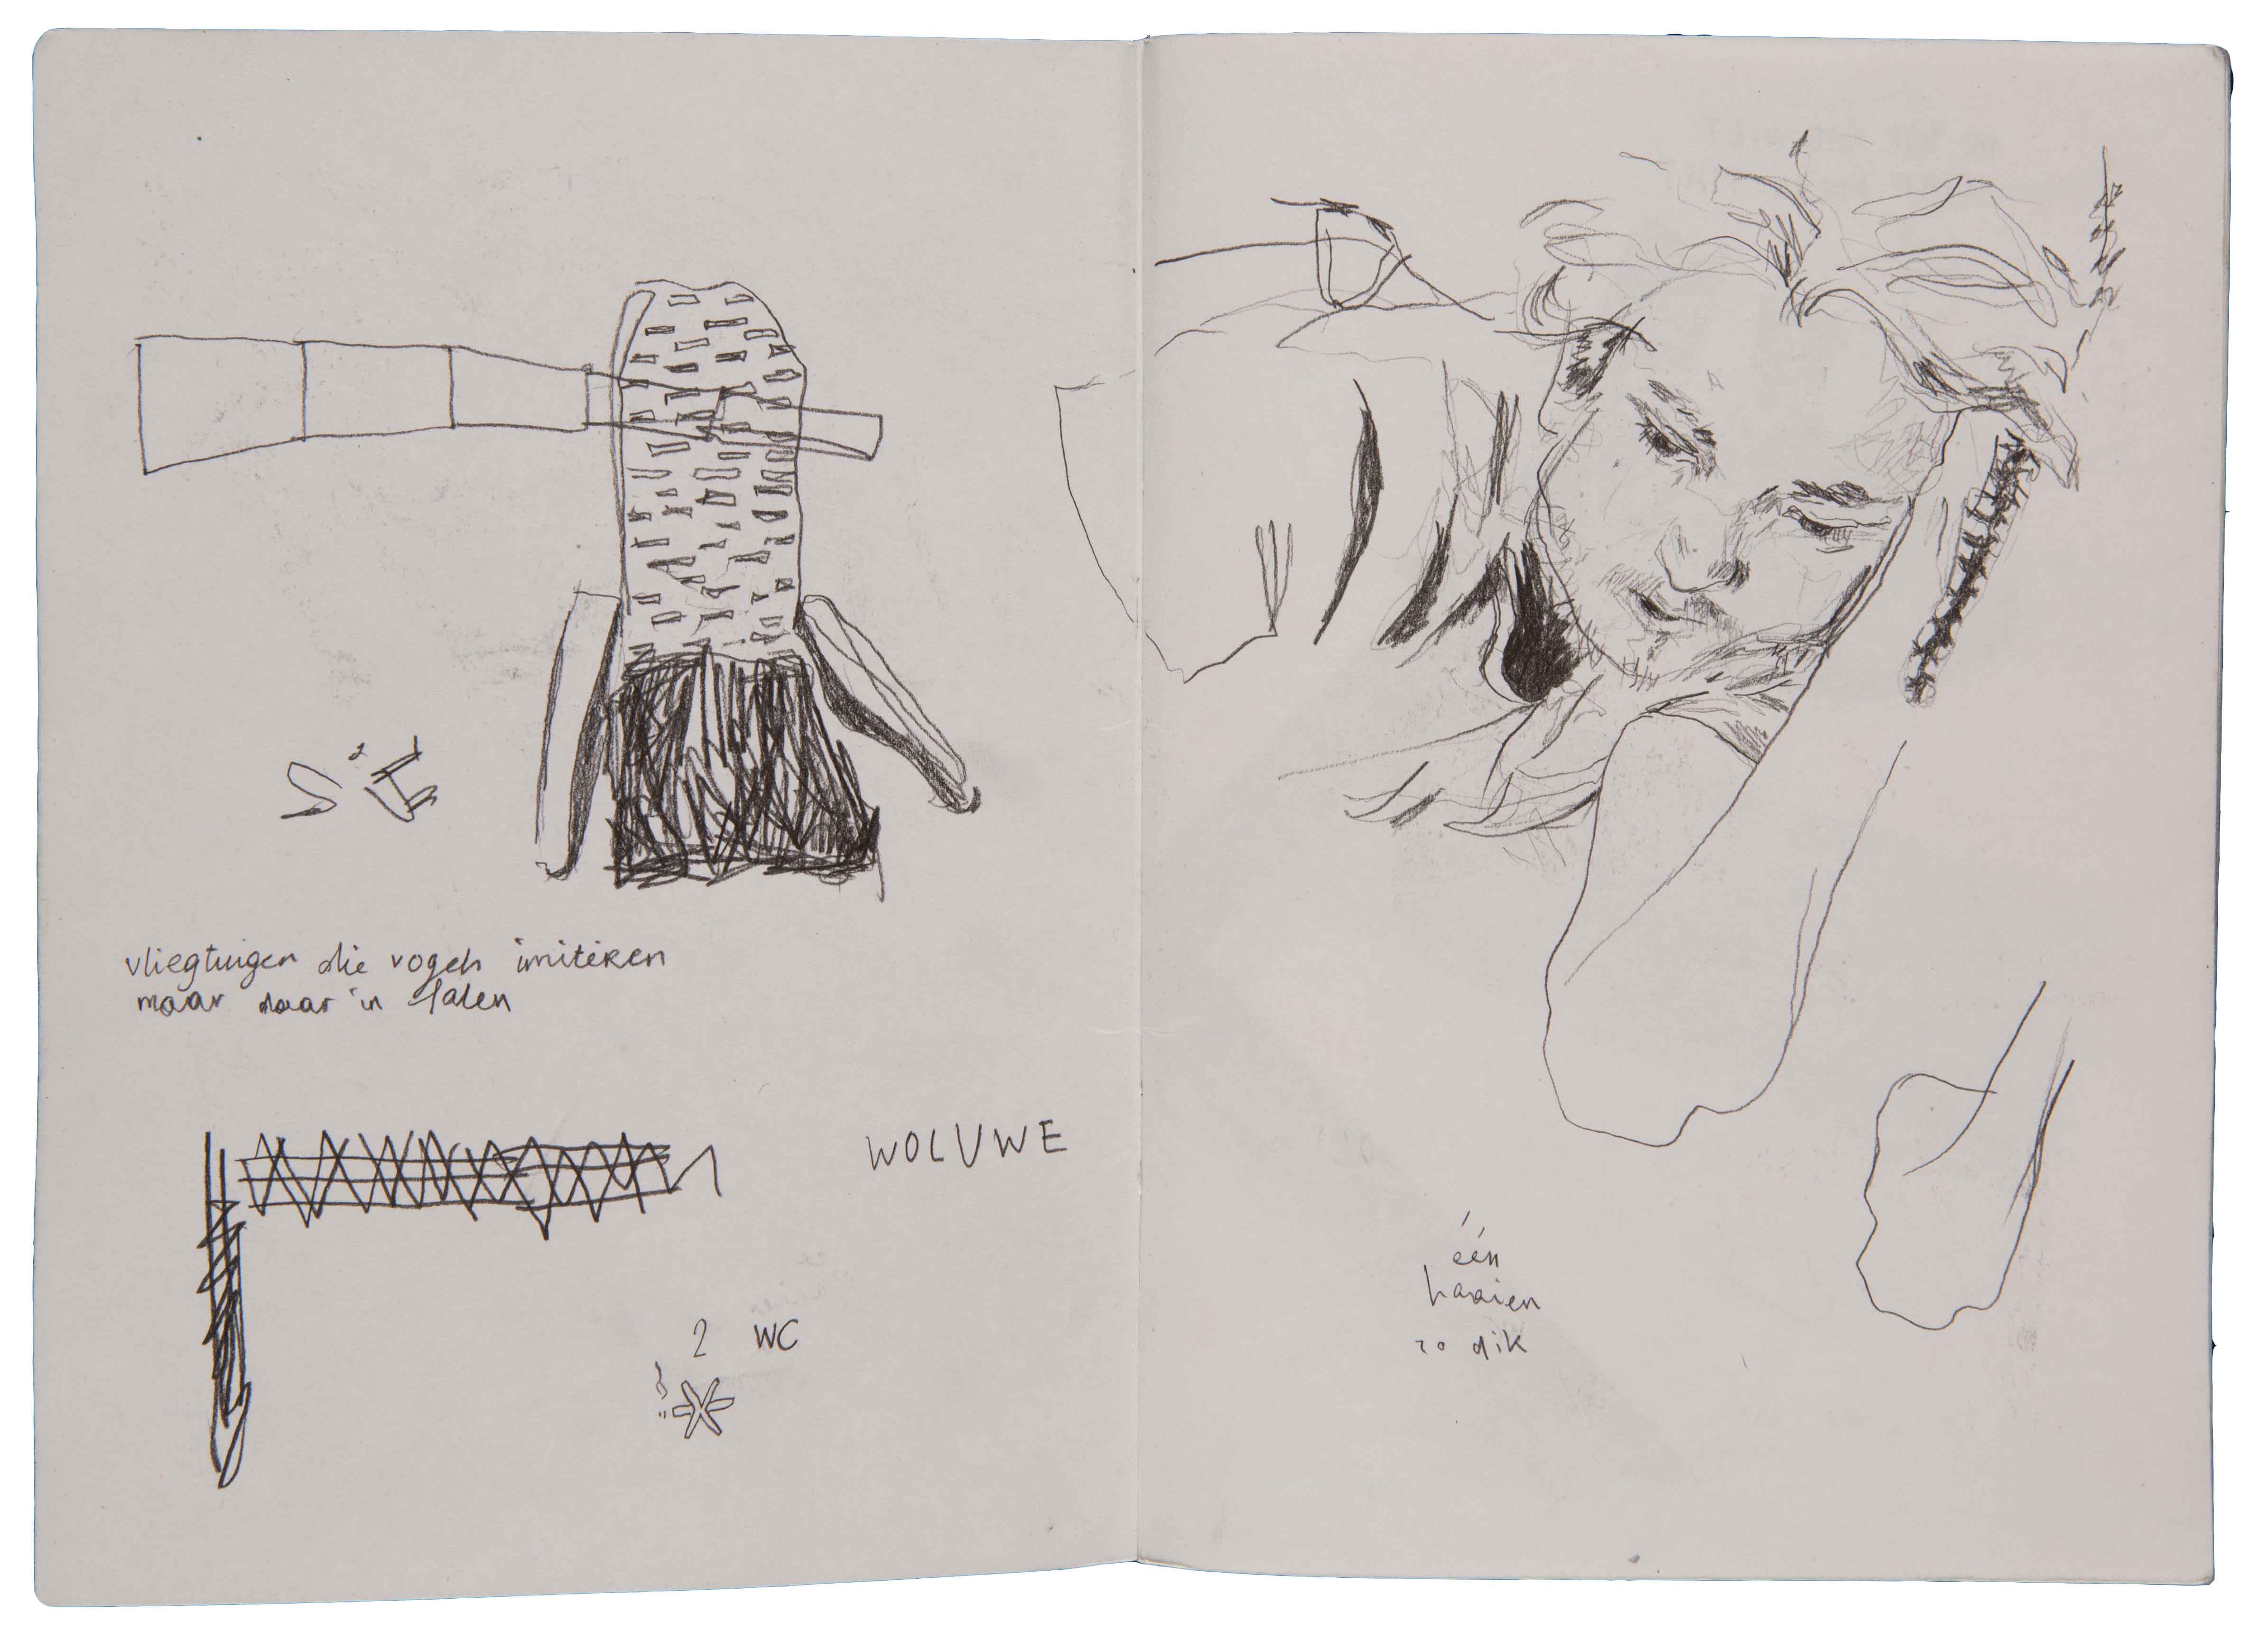 vliegtuigen die vogels imiteren
maar daar in falen
WOLUWE
2 WC
één
haaien
zo dik